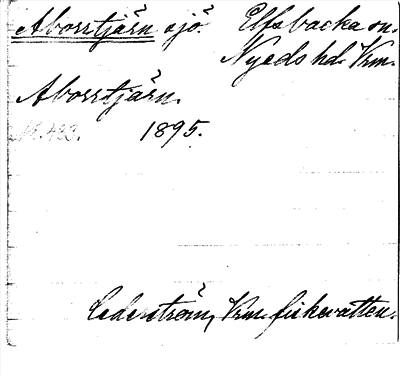 Aborrtjärn sjö. Elfsbacka sn.
Nyeds hd. Vrm.
Aborrtjärn.
1895.
Cederström, Vrm. fiskevatten.